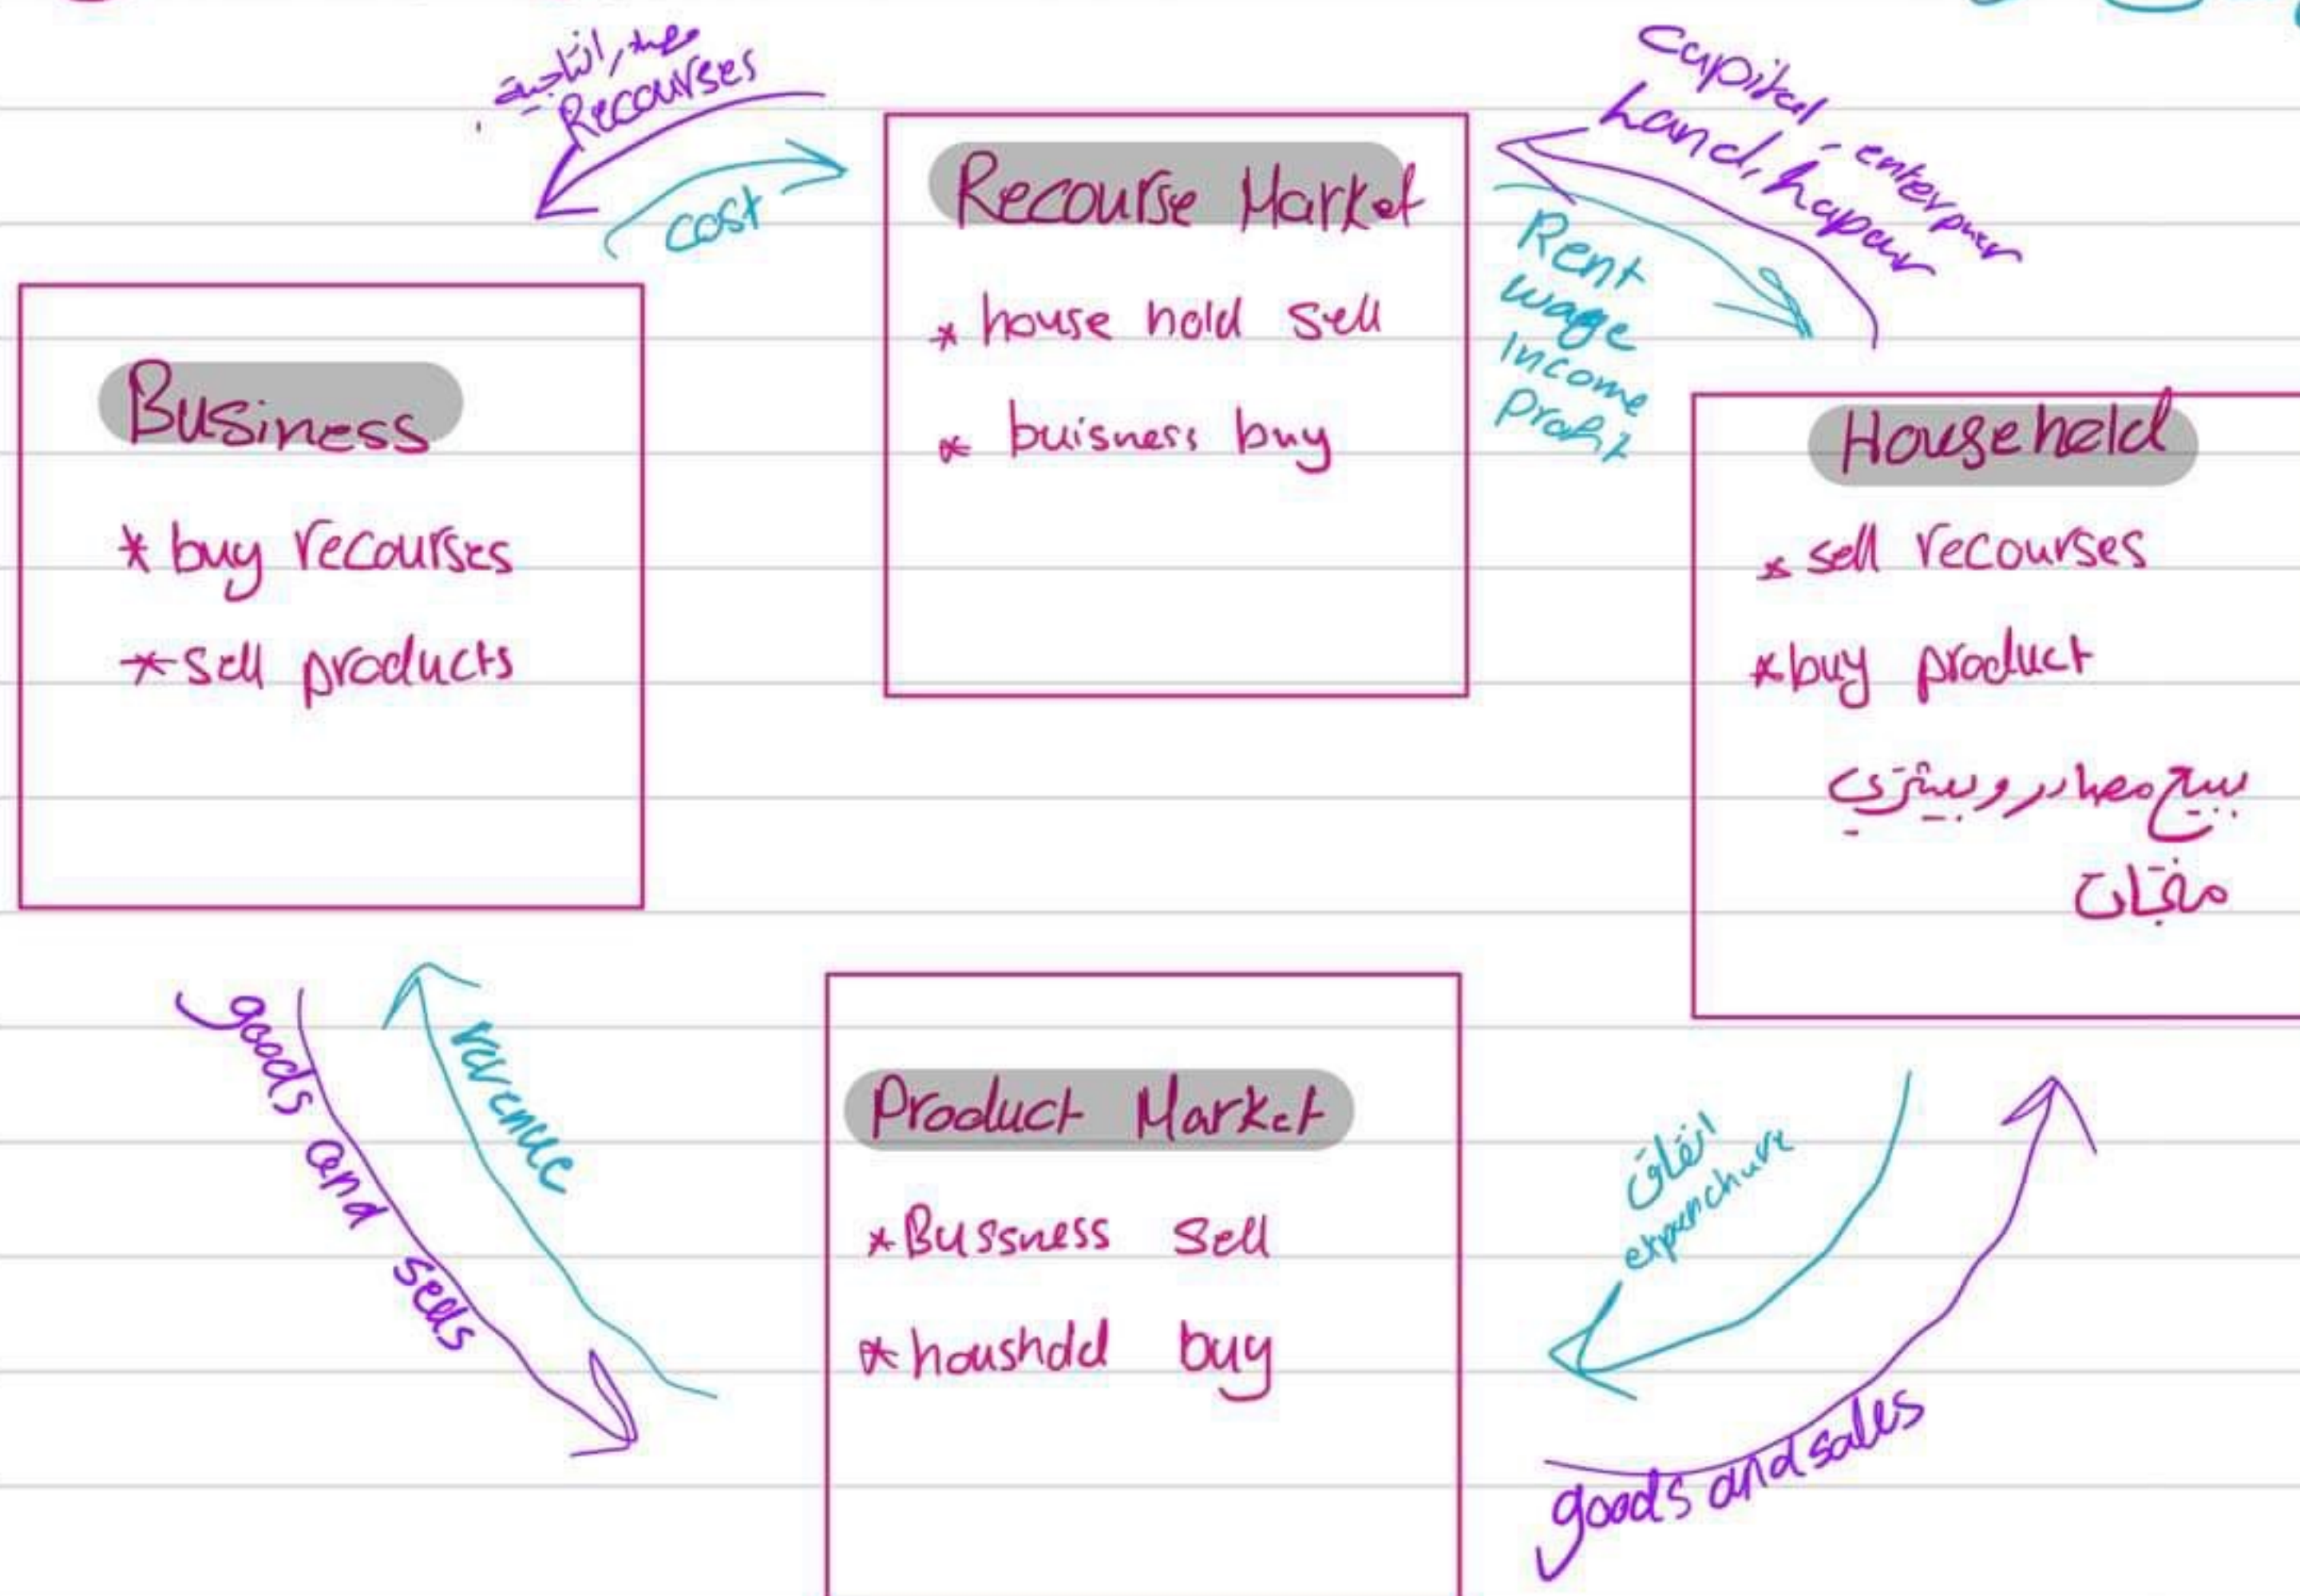 مصادر انتاجية
Recourses
cost
Recourse Market
* house hold sell
* buisness buy
capital - enterpruer
Rent
wage
income
profit
Business
* buy recourses
* sell products
Household
* sell recourses
* buy product
يبيع مصادر ويشتري
منتجات
goods and sells
revenue
Product Market
* Bussness sell
* houshold buy
انفاق
goods and sales